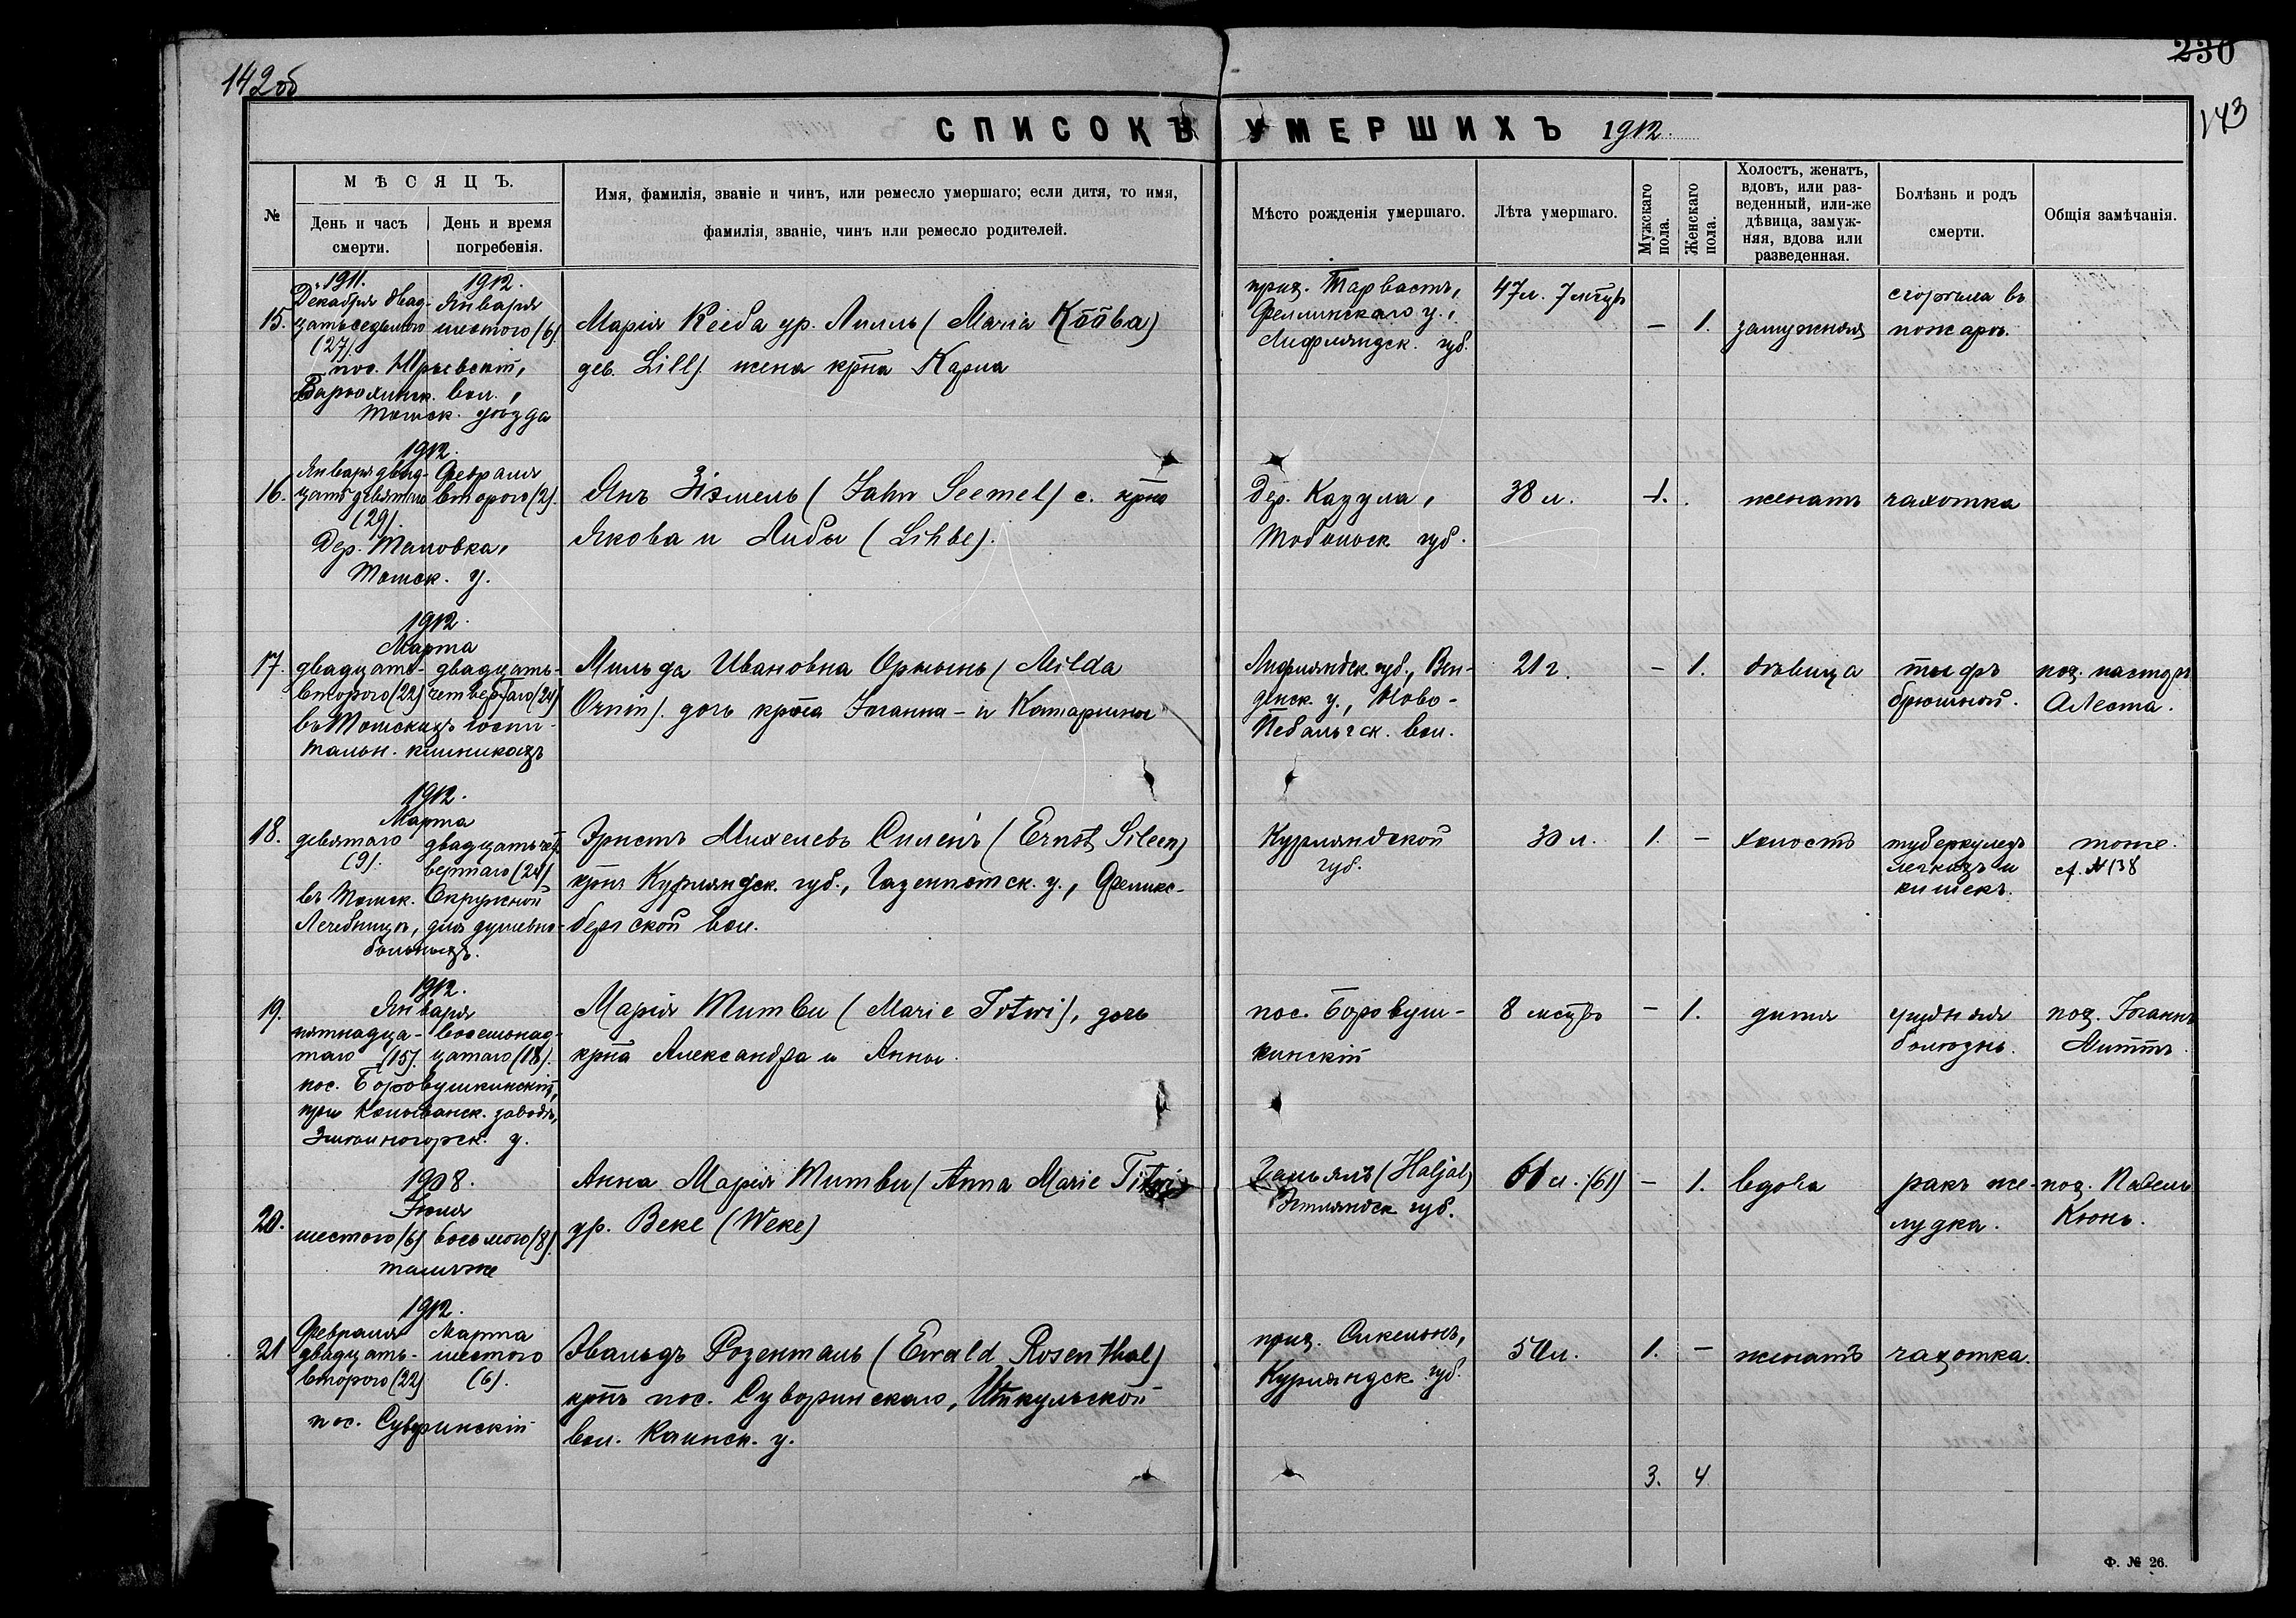 142об
230
143
СПИСОКЪ УМЕРШИХЪ 1912.
№
МѢСЯЦЪ.
День и часъ смерти.
День и время погребенія.
Имя, фамилія, званіе и чинъ, или ремесло умершаго; если дитя, то имя,
фамилія, званіе, чинъ или ремесло родителей.
Мѣсто рожденія умершаго.
Лѣта умершаго.
Мужскаго пола.
Женскаго пола.
Холостъ, женатъ,
вдовъ, или раз-
веденный, или-же
дѣвица, замуж-
няя, вдова или
разведенная.
Болѣзнь и родъ
смерти.
Общія замѣчанія.
15.
1911.
Декабря двад-
цатьседьмого
(27)
пос. Юрьевскій,
вол.,
Томск. уѣзда
1912.
Января
шестого (6)
Марія Кееба ур. Лилль (Maria Kööba)
дев. Lill). жена крна Карла
прих. Тарвастъ,
Феллинскаго у.,
Лифляндск. губ.
47 л. 7 мѣцъ
— 1.
замужняя
сгорѣла въ
пожарѣ
16.
1912.
Января двад-
цать девятаго
(29).
Дер. Таловка,
Томск. у.
Февраля
второго (2).
Янъ Зѣмель (Jahn Seemel) с. крна
Якова и Либы (Lihbe).
дер. Казула,
Тобольск. губ.
38 л.
1.
женатъ
чахотка
17.
1912.
Марта
двадцать-
второго (22)
двадцать-
четвертаго (24)
въ Томскихъ госпи-
тальн. клиникахъ
Мильда Ивановна Орнынь (Milda
Ornin). дочь крна Іоганна - и Катарины
Лифляндск. губ., Вен-
денск. у., Ново-
Пебальгск. вол.
21 г.
— 1.
дѣвица
тифъ
брюшной.
пох. пасторъ
А Леста.
18.
1912.
Марта
девятаго
(9).
двадцать чет-
вертаго (24)
въ Томск. Окружной
Лечебницѣ, для душевно-
больныхъ.
Эрнстъ Михелевъ Силенъ (Ernst Sileen)
крнъ Курляндск. губ., Газенпотск. у., Феликс-
бергской вол.
Курляндской
губ.
30 л.
1. —
холостъ
туберкулезъ
легкихъ и
кишекъ.
тоже.
cf. № 138
19.
1912.
Января
пятнадца-
таго (15).
восемнад-
цатаго (18).
пос. Боровушкинскій,
при Колыванск. заводѣ,
Змѣиногорск. у.
Марія Титви (Marie Titwi), дочь
крна Александра и Анны.
пос. Боровуш-
кинскій
8 мѣсцъ
— 1.
дитя
болѣзнь.
пох. Іоганнъ
Литтъ.
20.
1908.
Іюля
шестого (6)
восьмого (8).
тамъ-же
Анна Марія Титви (Anna Marie Titwi)
ур. Веке (Weke)
Гальялъ (Haljal)
Эстляндск. губ.
61 л. (61)
— 1.
вдова
ракъ же-
лудка.
пох. Павелъ
Кюнъ.
21
1912.
Февраля
двадцать-
второго (22)
Марта
шестого
(6).
пос. Суворинскій
Эвальдъ Розенталь (Ewald Rosenthal)
крнъ пос. Суворинскаго, Иткульской
вол. Каинск. у.
прих. Сикельнъ,
Курляндск. губ.
50 л.
1. —
женатъ
чахотка.
3. 4
Ф. № 26.